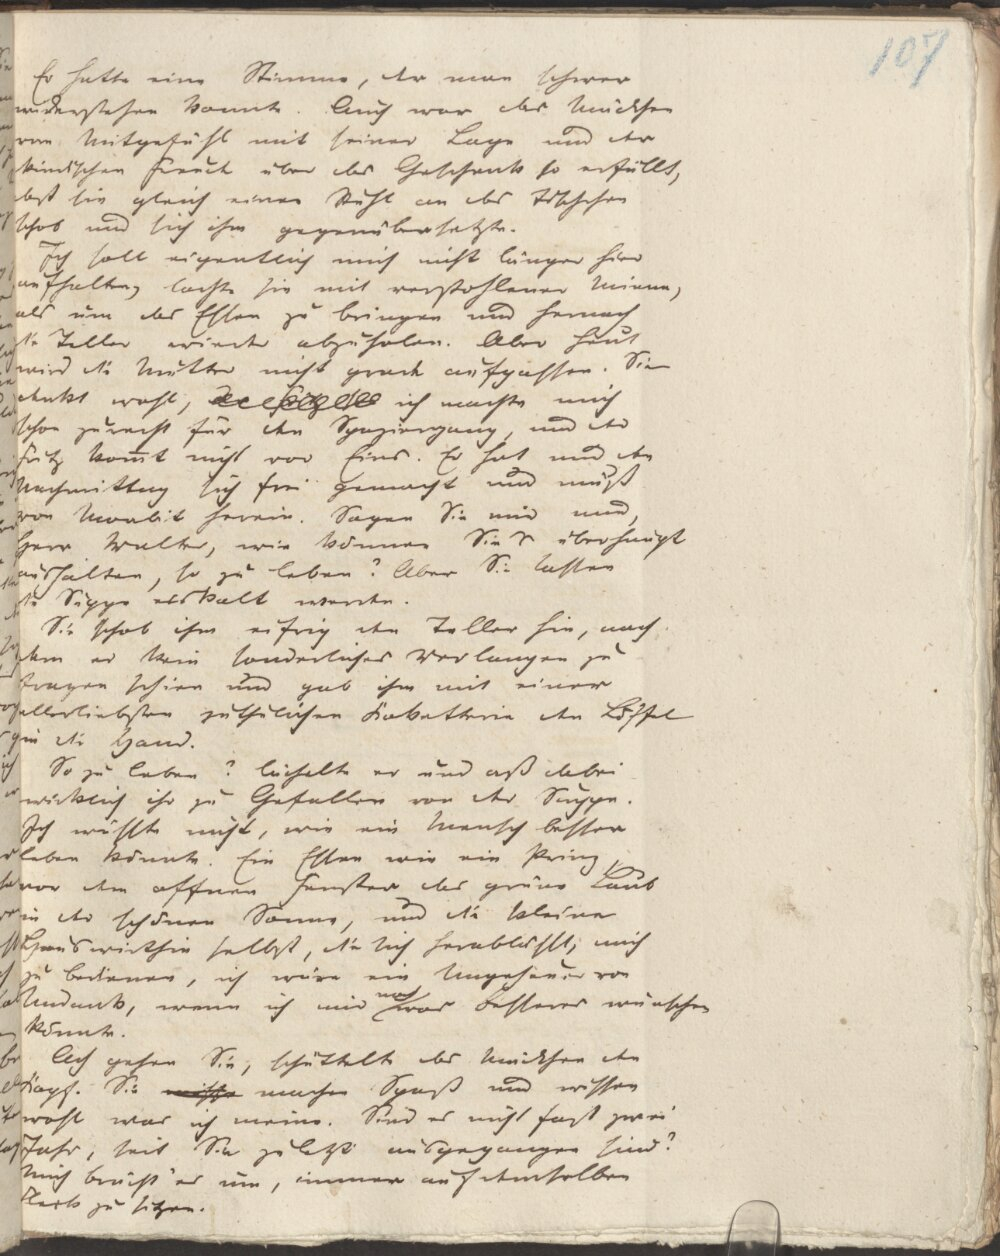 107
Er hatte eine Stimme, der man schwer
widerstehen konnte. Auch war das Mädchen
von Mitgefühl mit seiner Lage und der
kindischen Freude über das Geschenk so erfüllt,
daß sie gleich einen Stuhl an das Tischchen
schob und sich ihm gegenübersetzte.
Ich soll eigentlich mich nicht länger hier
aufhalten, lachte sie mit verstohlener Miene,
als um das Essen zu bringen und hernach
die Teller wieder abzuholen. Aber heut
wird die Mutter nicht grade aufpassen. Sie
denkt wohl, ich machte mich
schon zurecht für den Spaziergang, und der
Fritz kom̅t nicht vor Eins. Er hat nur den
Nachmittag sich frei gemacht und muß
von Moabit herein. Sagen Sie mir nur,
Herr Walter, wie können Sie's überhaupt
aushalten, so zu leben? Aber Sie lassen
die Suppe eiskalt werden.
Sie schob ihm eifrig den Teller hin, nach
dem er kein sonderliches Verlangen zu
tragen schien und gab ihm mit einer
allerliebsten zuthulichen Koketterie den Löffel
in die Hand.
So zu leben? lächelte er und aß dabei
wirklich ihr zu Gefallen von der Suppe.
Ich wüßte nicht, wie ein Mensch besser
leben könnte. Ein Essen wie ein Prinz,
vor dem offnen Fenster das grüne Laub
in der schönen Sonne, und die kleine
Hauswirthin selbst, die sich herabläßt, mich
zu bedienen, ich wäre ein Ungeheuer von
Undank, wenn ich mir noch was Besseres wünschen
könnte.
Ach gehen Sie, schüttelte das Mädchen den
Kopf. Sie machen Spaß und wissen
wohl was ich meine. Sind es nicht fast zwei
Jahr, seit Sie zuletzt ausgegangen sind?
Mich brächt' es um, immer auf demselben
Fleck zu sitzen.